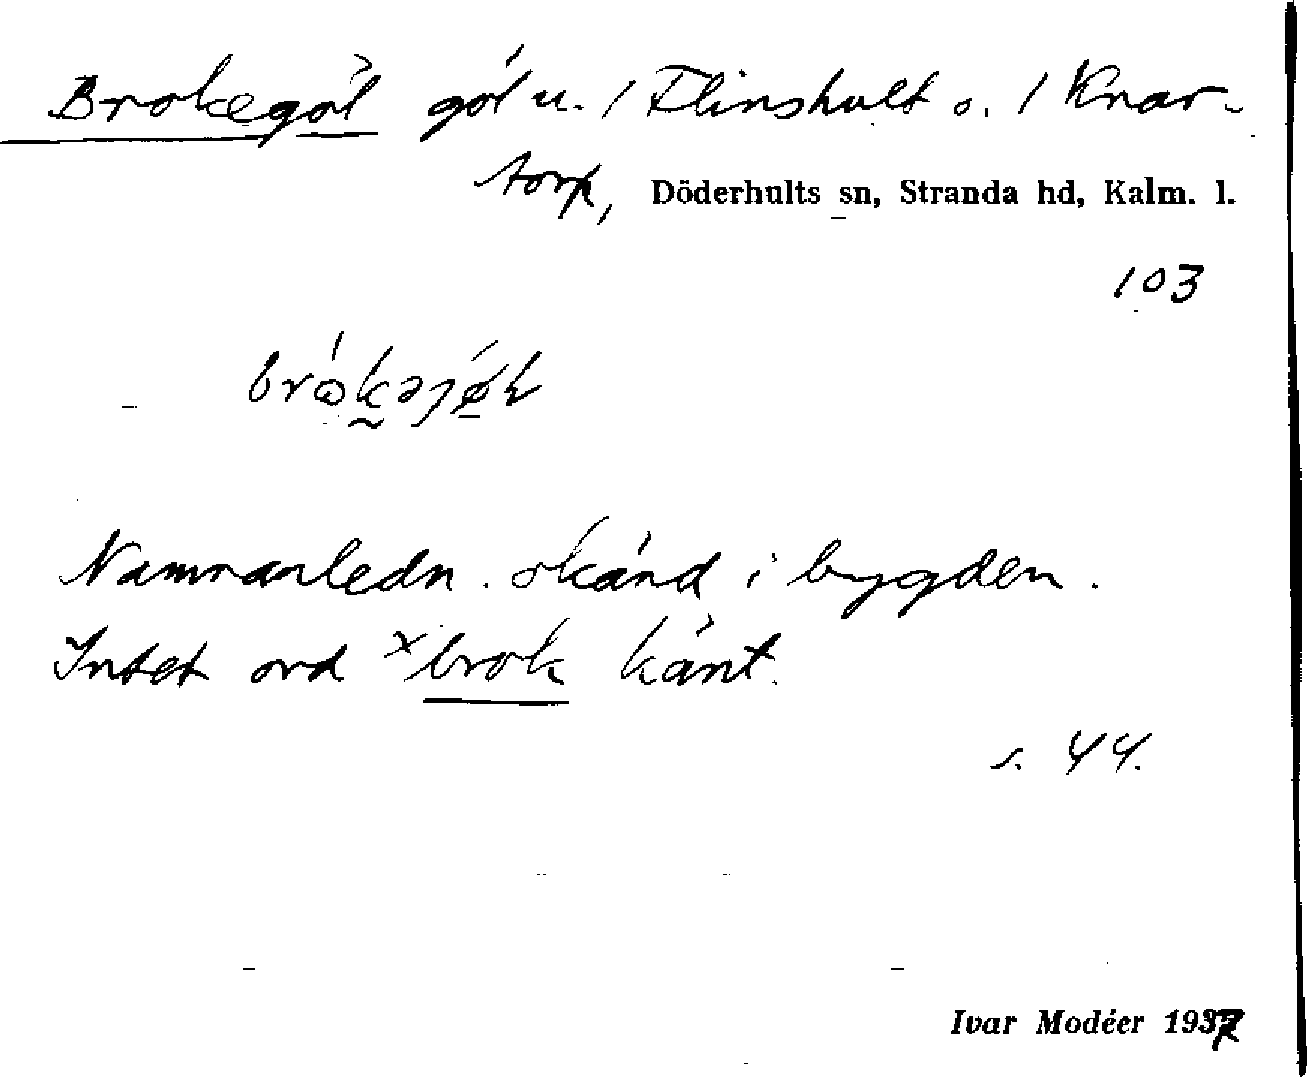 Brokegöl göl u. / Flinshult o. / Knar-
torp, Döderhults sn, Stranda hd, Kalm. l.
103
Namnanledn. okänd i bygden.
Intet ord ×brok känt.
s. 44.
Ivar Modéer 1937